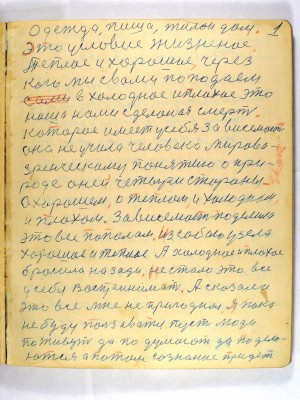 Одежда, пища, жилой дом. 1
Это условие жизненое
Теплое и хорошое, через
кого мы свами поподаем
в холодное и плохое это
наша нами сделоная смерт.
которое имеет усебя Зависемост
она неучила человека мирово-
зренческому понятию о при-
роде оней четыри стораны
Охорошем, о теплом и холодном
и плохом. Зависемост поделила
это все пополам, из собою узела
хорошое и теплое. А холодное и плохое
бросила назади, нестало это все
усебя воспринимат. А сказала
это все мне не пригодное. Я пока
небуду ползавати пуст люди
поживут да подумают да подело-
ются а потом сознание придет